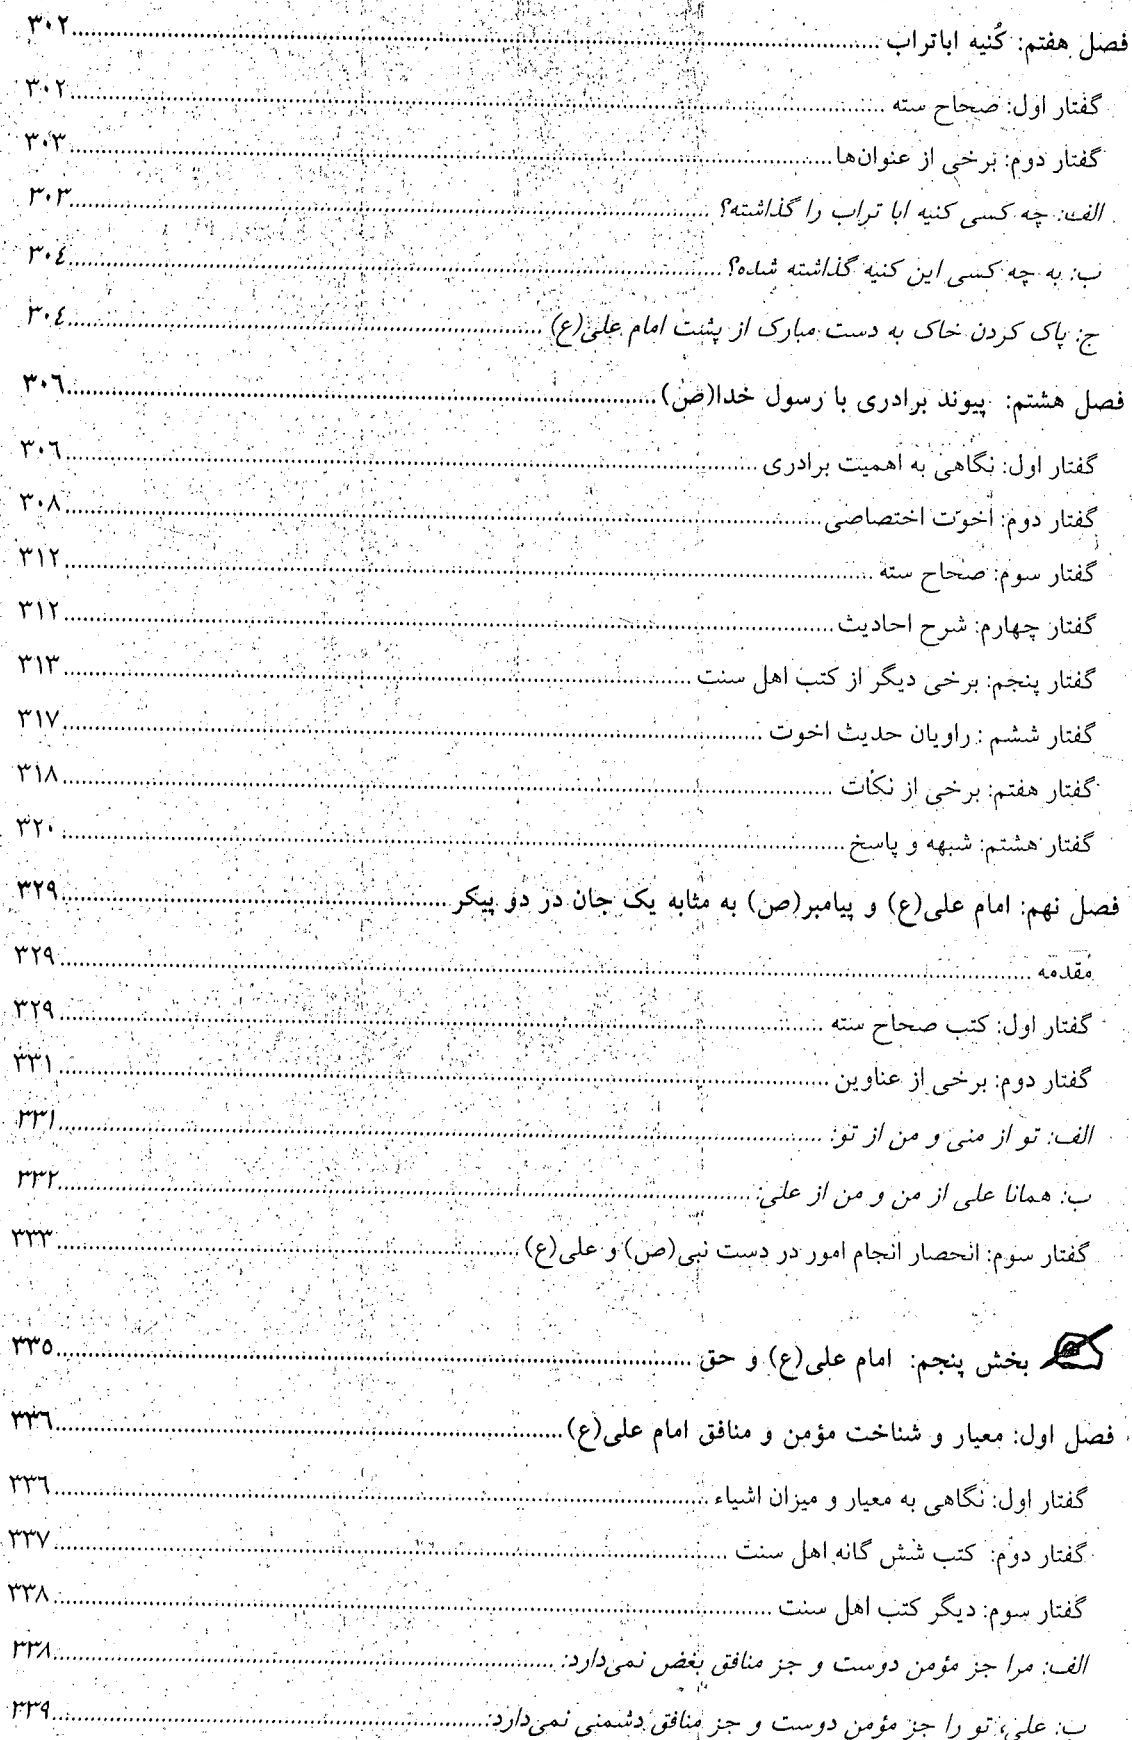 فصل هفتم: کُنیه اباتراب ........ ٣٠٢
گفتار اول: صحاح سته ........ ٣٠٢
گفتار دوم: برخی از عنوان‌ها ........ ٣٠٣
الف: چه کسی کنیه ابا تراب را گذاشته؟ ........ ٣٠٣
ب: به چه کسی این کنیه گذاشته شده؟ ........ ٣٠٤
ج: پاک کردن خاک به دست مبارک از پشت امام علی(ع) ........ ٣٠٤
فصل هشتم: پیوند برادری با رسول خدا(ص) ........ ٣٠٦
گفتار اول: نگاهی به اهمیت برادری ........ ٣٠٦
گفتار دوم: اخوّت اختصاصی ........ ٣٠٨
گفتار سوم: صحاح سته ........ ٣١٢
گفتار چهارم: شرح احادیث ........ ٣١٢
گفتار پنجم: برخی دیگر از کتب اهل سنت ........ ٣١٣
گفتار ششم : راویان حدیث اخوت ........ ٣١٧
گفتار هفتم: برخی از نکات ........ ٣١٨
گفتار هشتم: شبهه و پاسخ ........ ٣٢٠
فصل نهم: امام علی(ع) و پیامبر(ص) به مثابه یک جان در دو پیکر ........ ٣٢٩
مقدمه ........ ٣٢٩
گفتار اول: کتب صحاح سته ........ ٣٢٩
گفتار دوم: برخی از عناوین ........ ٣٣١
الف: تو از منی و من از تو: ........ ٣٣١
ب: همانا علی از من و من از علی: ........ ٣٣٢
گفتار سوم: انحصار انجام امور در دست نبی(ص) و علی(ع) ........ ٣٣٣
بخش پنجم: امام علی(ع) و حق ........ ٣٣٥
فصل اول: معیار و شناخت مؤمن و منافق امام علی(ع) ........ ٣٣٦
گفتار اول: نگاهی به معیار و میزان اشیاء ........ ٣٣٦
گفتار دوم: کتب شش گانه اهل سنت ........ ٣٣٧
گفتار سوم: دیگر کتب اهل سنت ........ ٣٣٨
الف: مرا جز مؤمن دوست و جز منافق بغض نمی‌دارد: ........ ٣٣٨
ب: علی، تو را جز مؤمن دوست و جز منافق دشمنی نمی‌دارد: ........ ٣٣٩